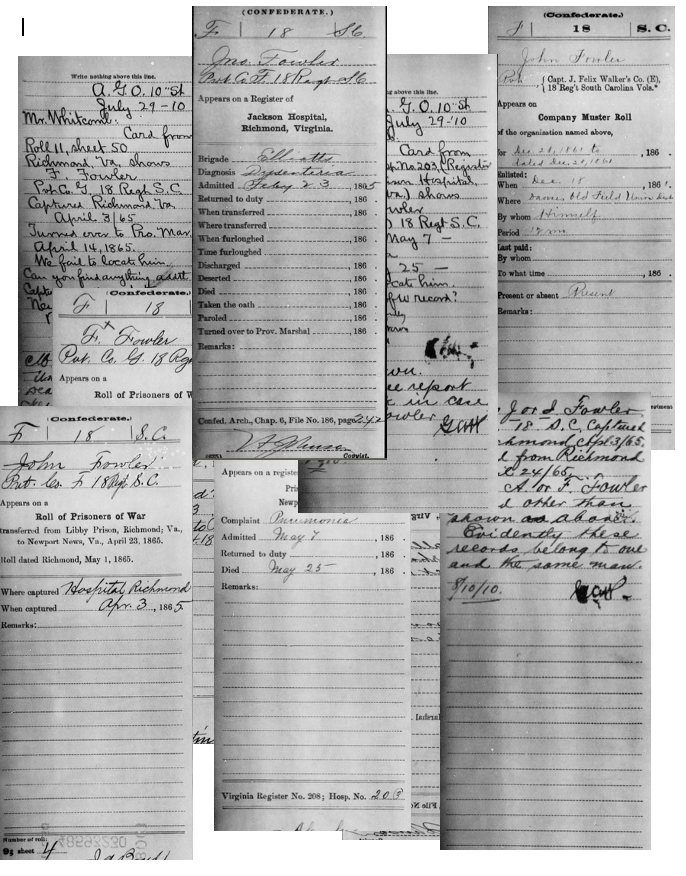 (CONFEDERATE.)
F | 18 | S.C.
Jno. Fowler
Pvt Co. F. 18 Regt SC
Appears on a Register of
Jackson Hospital,
Richmond, Virginia.
Brigade Elliotts
Diagnosis Dysenteria
Admitted Feby 23, 1865
Returned to duty , 186 .
When transferred , 186 .
Where transferred
When furloughed , 186 .
Time furloughed
Discharged , 186 .
Deserted , 186 .
Died , 186 .
Taken the oath , 186 .
Paroled , 186 .
Turned over to Prov. Marshal , 186 .
Remarks:
Confed. Arch., Chap. 6, File No. 186, page 242
Copyist.
(Confederate.)
F | 18 | S. C.
John Fowler
Pvt., { Capt. J. Felix Walker's Co. (E),
18 Reg't South Carolina Vols.*
Appears on
Company Muster Roll
of the organization named above,
for Dec 28, 1861 to , 186 .
dated Dec 28, 1861
Enlisted:
When Dec 18 , 186 1.
Where Old Field Union Dist
By whom Himself
Period 12 mo
Last paid:
By whom
To what time , 186 .
Present or absent Present
Remarks:
Write nothing above this line.
A.G.O. 10" St
July 29-10
Mr. Whitcomb:
Card from
Roll 11, sheet 50
Richmond, Va., shows
F. Fowler
Pvt. Co. G. 18 Regt. S.C.
Captured Richmond, Va.
April 3/65
Turned over to Pro. Mar.
April 14, 1865.
We fail to locate him.
Can you find anything addtl
g above this line.
.G.O. 10" St
July 29-10
Card from
No. 203, (Register
Hospital,
Va.) shows
wler
18 Regt S.C.
May 7 —
25 —
cate him.
record?
wn.
ee report
k in case
owler
Confederate.)
F | 18
F. Fowler
Pvt. Co. G. 18 Reg
Appears on a
Roll of Prisoners of W
(Confederate.)
F | 18 | S.C.
John Fowler
Pvt. Co. F 18 Regt. S.C.
Appears on a
Roll of Prisoners of War
transferred from Libby Prison, Richmond; Va.,
to Newport News, Va., April 23, 1865.
Roll dated Richmond, May 1, 1865.
Where captured Hospital, Richmond
When captured Apr. 3, 1865
Remarks:
Number of roll:
sheet 4
Appears on a registe
Complaint Pneumonia
Admitted May 7 , 186 .
Returned to duty , 186 .
Died May 25 , 186 .
Remarks:
Virginia Register No. 208; Hosp. No. 203
J or I. Fowler
18 S.C. Captured
hmond Apl 3/65.
from Richmond
24/65
A. or F. Fowler
d other than
shown as above.
Evidently these
records belong to one
and the same man.
8/10/10.